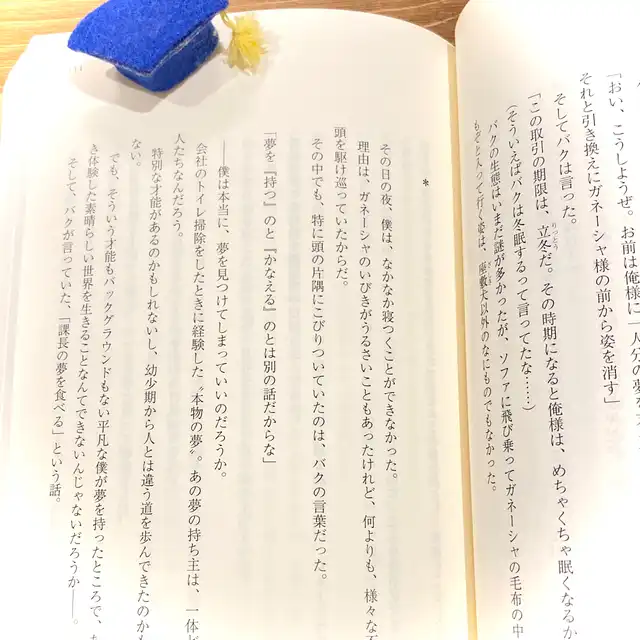 「おい、こうしようぜ。お前は俺様に「一人分の夢を
それと引き換えにガネーシャ様の前から姿を消す」
そしてバクは言った。
「この取引の期限は、立冬だ。その時期になると俺様は、めちゃくちゃ眠くなるか
りっとう
(そういえばバクは冬眠するって言ってたな……)
バクの生態はいまだ謎が多かったが、ソファに飛び乗ってガネーシャの毛布の中
もぞと入って行く姿は、座敷犬以外のなにものでもなかった。
*
その日の夜、僕は、なかなか寝つくことができなかった。
理由は、ガネーシャのいびきがうるさいこともあったけれど、何よりも、様々な
頭を駆け巡っていたからだ。
その中でも、特に頭の片隅にこびりついていたのは、バクの言葉だった。
「夢を『持つ』のと『かなえる』のとは別の話だからな」
――僕は本当に、夢を見つけてしまっていいのだろうか。
会社のトイレ掃除をしたときに経験した〝本物の夢〟。あの夢の持ち主は、一体ど
人たちなんだろう。
特別な才能があるのかもしれないし、幼少期から人とは違う道を歩んできたのかも
ない。
でも、そういう才能もバックグラウンドもない平凡な僕が夢を持ったところで、
き体験した素晴らしい世界を生きることなんてできないんじゃないだろうか――。
そして、バクが言っていた、「課長の夢を食べる」という話。